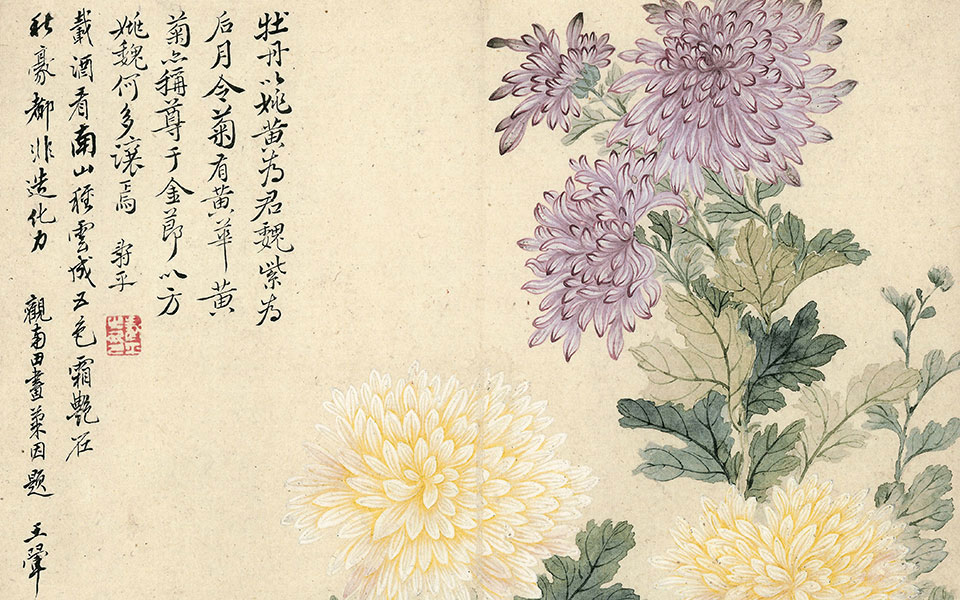 牡丹以姚黃為君魏紫為
后月令菊有黃華黃
菊亦稱尊于金節以方
姚魏何多讓焉 壽平
載酒看南山種雲成五色霜艷在
秋豪都非造化力 觀南田畫菊因題 王翬